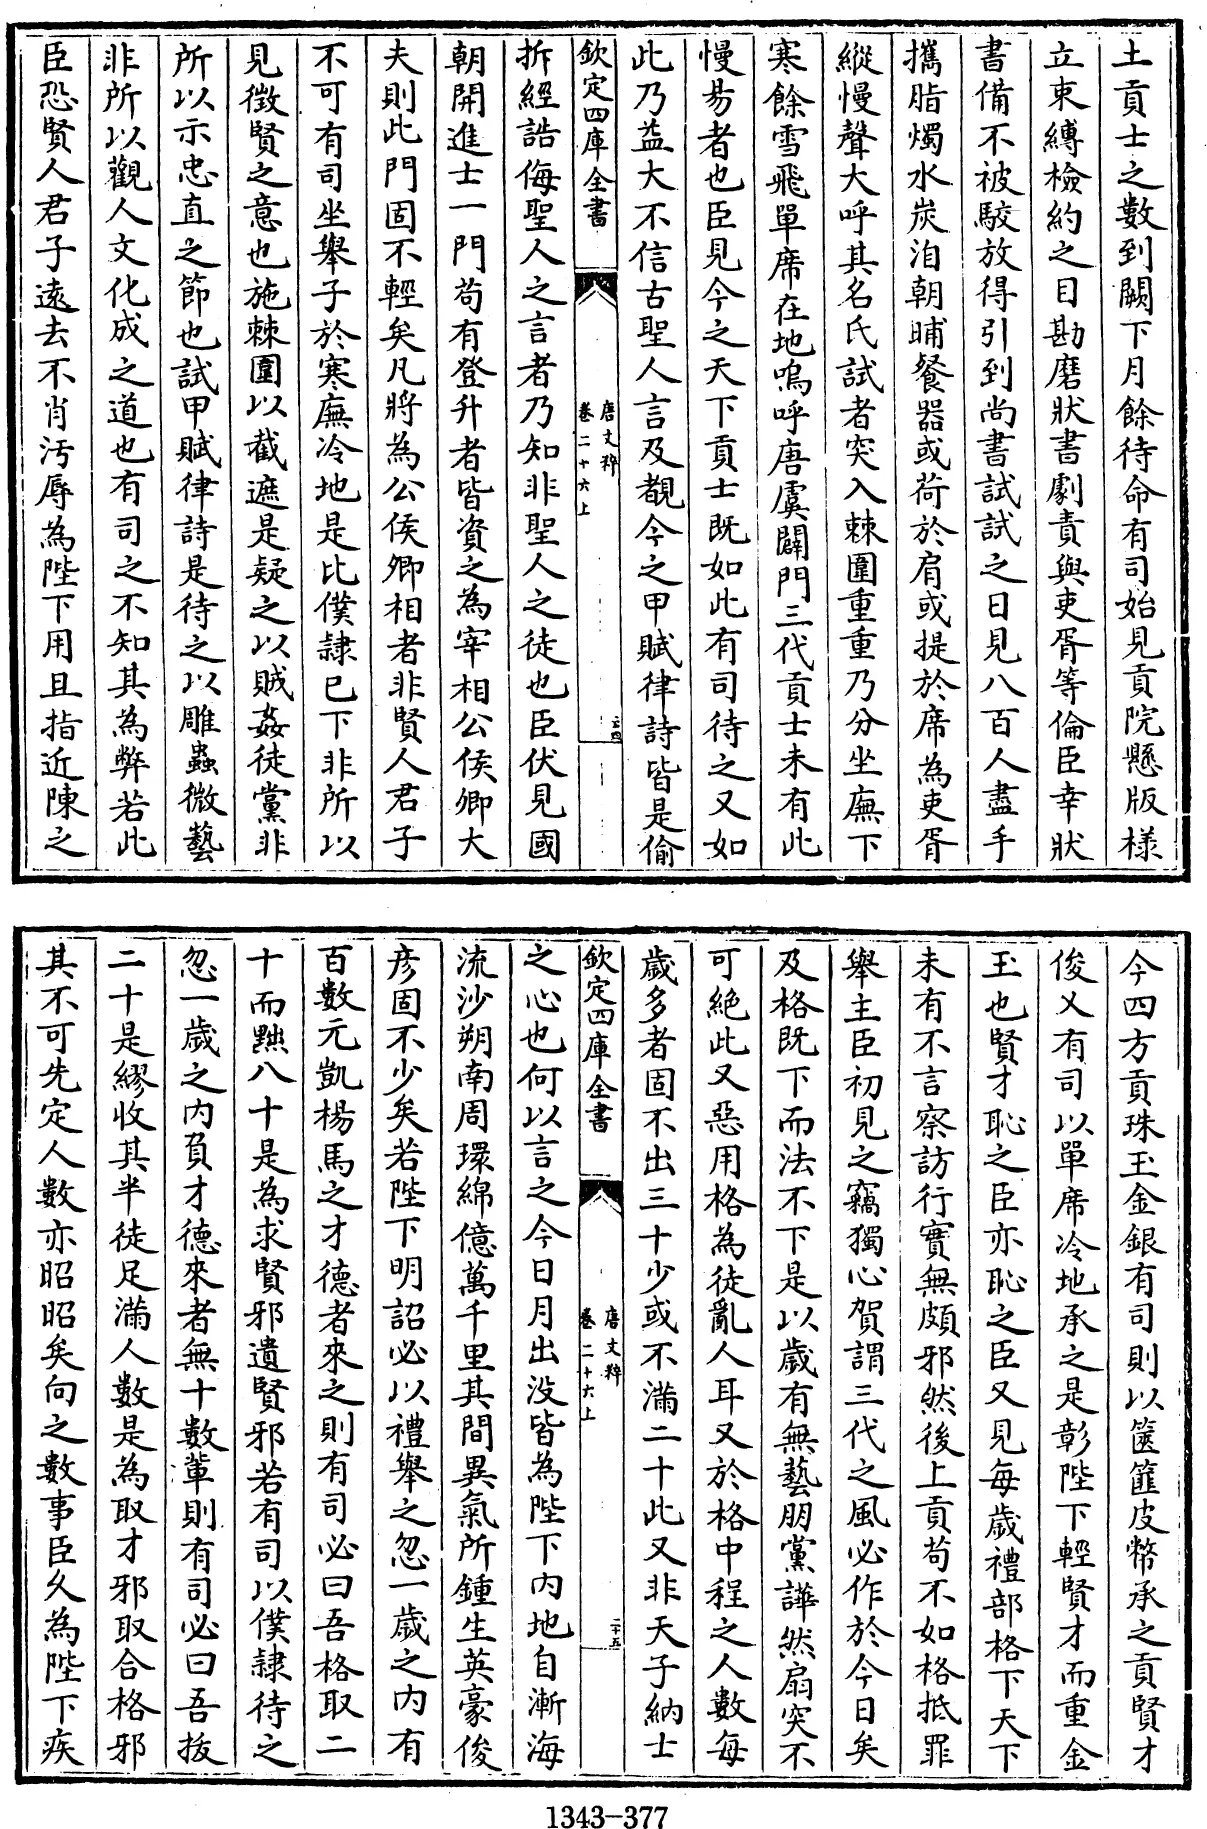 土貢士之數到闕下月餘待命有司始見貢院懸版樣
立束縛檢約之目勘磨狀書劇責與吏胥等倫臣幸狀
書備不被駮放得引到尚書試試之日見八百人盡手
攜脂燭水炭洎朝晡餐器或荷於肩或提於席為吏胥
縱慢聲大呼其名氏試者突入棘圍重重乃分坐廡下
寒餘雪飛單席在地嗚呼唐虞闢門三代貢士未有此
慢易者也臣見今之天下貢士既如此有司待之又如
此乃益大不信古聖人言及覩今之甲賦律詩皆是偷
欽定四庫全書
唐文粹
卷二十六上
二四
拆經誥侮聖人之言者乃知非聖人之徒也臣伏見國
朝開進士一門苟有登升者皆資之為宰相公侯卿大
夫則此門固不輕矣凡將為公侯卿相者非賢人君子
不可有司坐舉子於寒廡冷地是比僕隸已下非所以
見徵賢之意也施棘圍以截遮是疑之以賊姦徒黨非
所以示忠直之節也試甲賦律詩是待之以雕蟲微藝
非所以觀人文化成之道也有司之不知其為弊若此
臣恐賢人君子遠去不肖汚辱為陛下用且指近陳之
今四方貢珠玉金銀有司則以篋篚皮幣承之貢賢才
俊乂有司以單席冷地承之是彰陛下輕賢才而重金
玉也賢才恥之臣亦恥之臣又見每歲禮部格下天下
未有不言察訪行實無頗邪然後上貢苟不如格抵罪
舉主臣初見之竊獨心賀謂三代之風必作於今日矣
及格既下而法不下是以歲有無藝朋黨譁然扇突不
可絕此又惡用格為徒亂人耳又於格中程之人數每
歲多者固不出三十少或不滿二十此又非天子納士
欽定四庫全書
唐文粹
卷二十六上
二十五
之心也何以言之今日月出没皆為陛下内地自漸海
流沙朔南周環綿億萬千里其間異氣所鍾生英豪俊
彦固不少矣若陛下明詔必以禮舉之忽一歲之内有
百數元凱楊馬之才德者來之則有司必曰吾格取二
十而黜八十是為求賢邪遺賢邪若有司以僕隸待之
忽一歲之内負才德來者無十數輩則有司必曰吾拔
二十是繆收其半徒足滿人數是為取才邪取合格邪
其不可先定人數亦昭昭矣向之數事臣久為陛下疾
1343-377